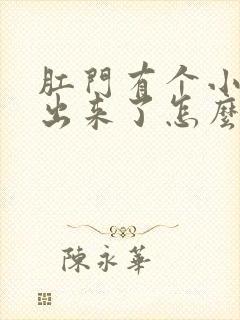 肛門有个小
出来了怎麼
陳永華